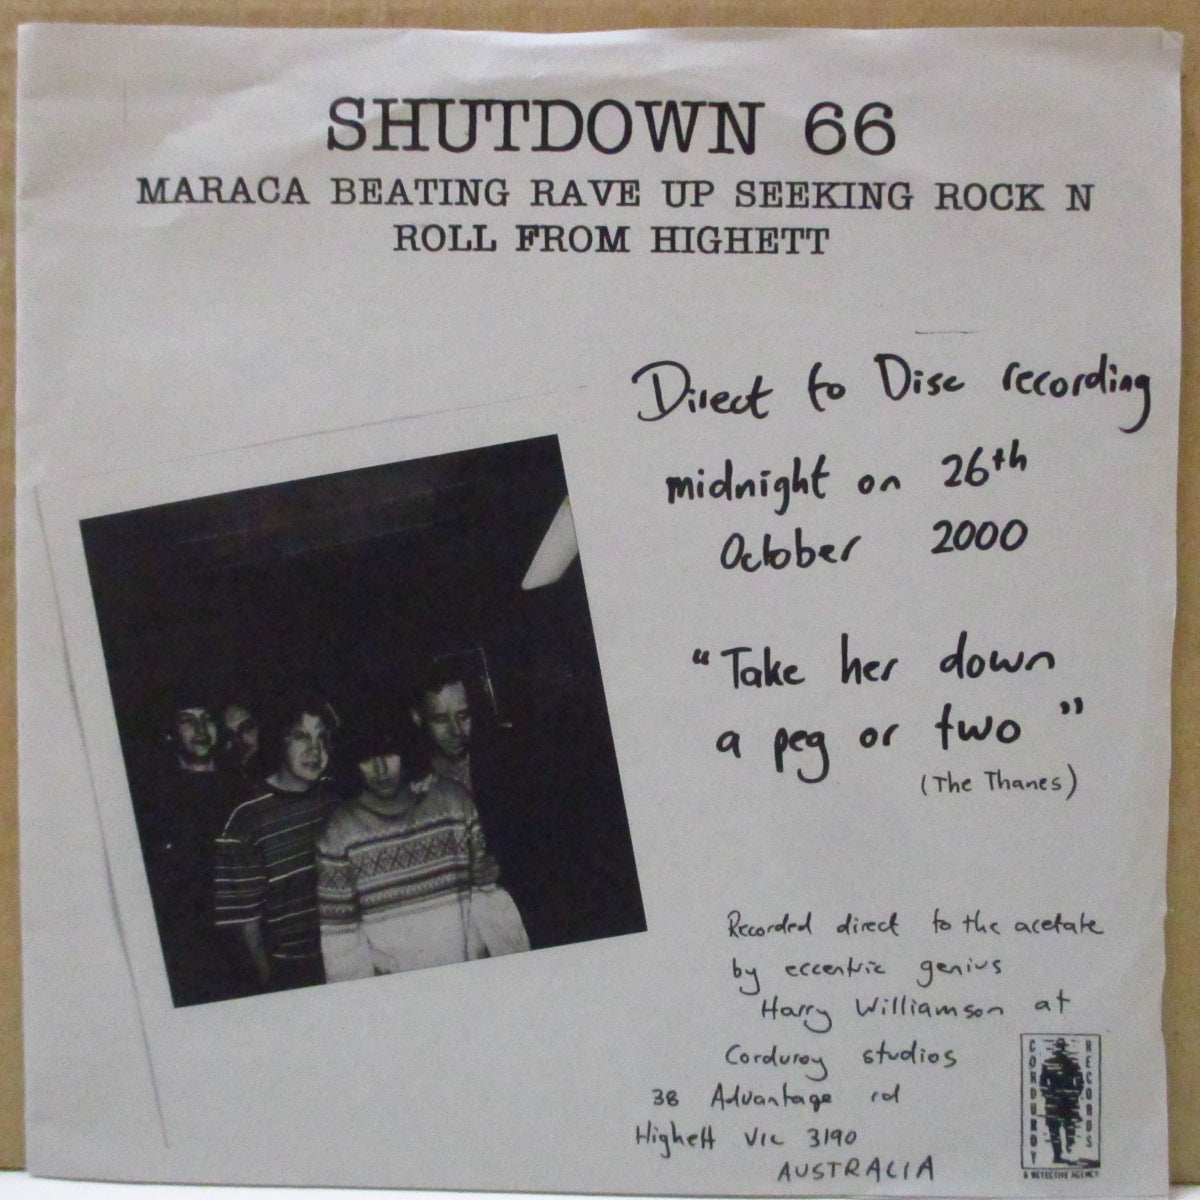 SHUTDOWN 66
MARACA BEATING RAVE UP SEEKING ROCK N
ROLL FROM HIGHETT
Direct to Disc recording
midnight on 26th
October 2000
“Take her down
a peg or two”
(The Thanes)
Recorded direct to the acetate
by eccentric genius
Harry Williamson at
Corduroy studios
38 Advantage rd
Highett Vic 3190
AUSTRALIA
CORDUROY
RECORDS
A DETECTIVE AGENCY